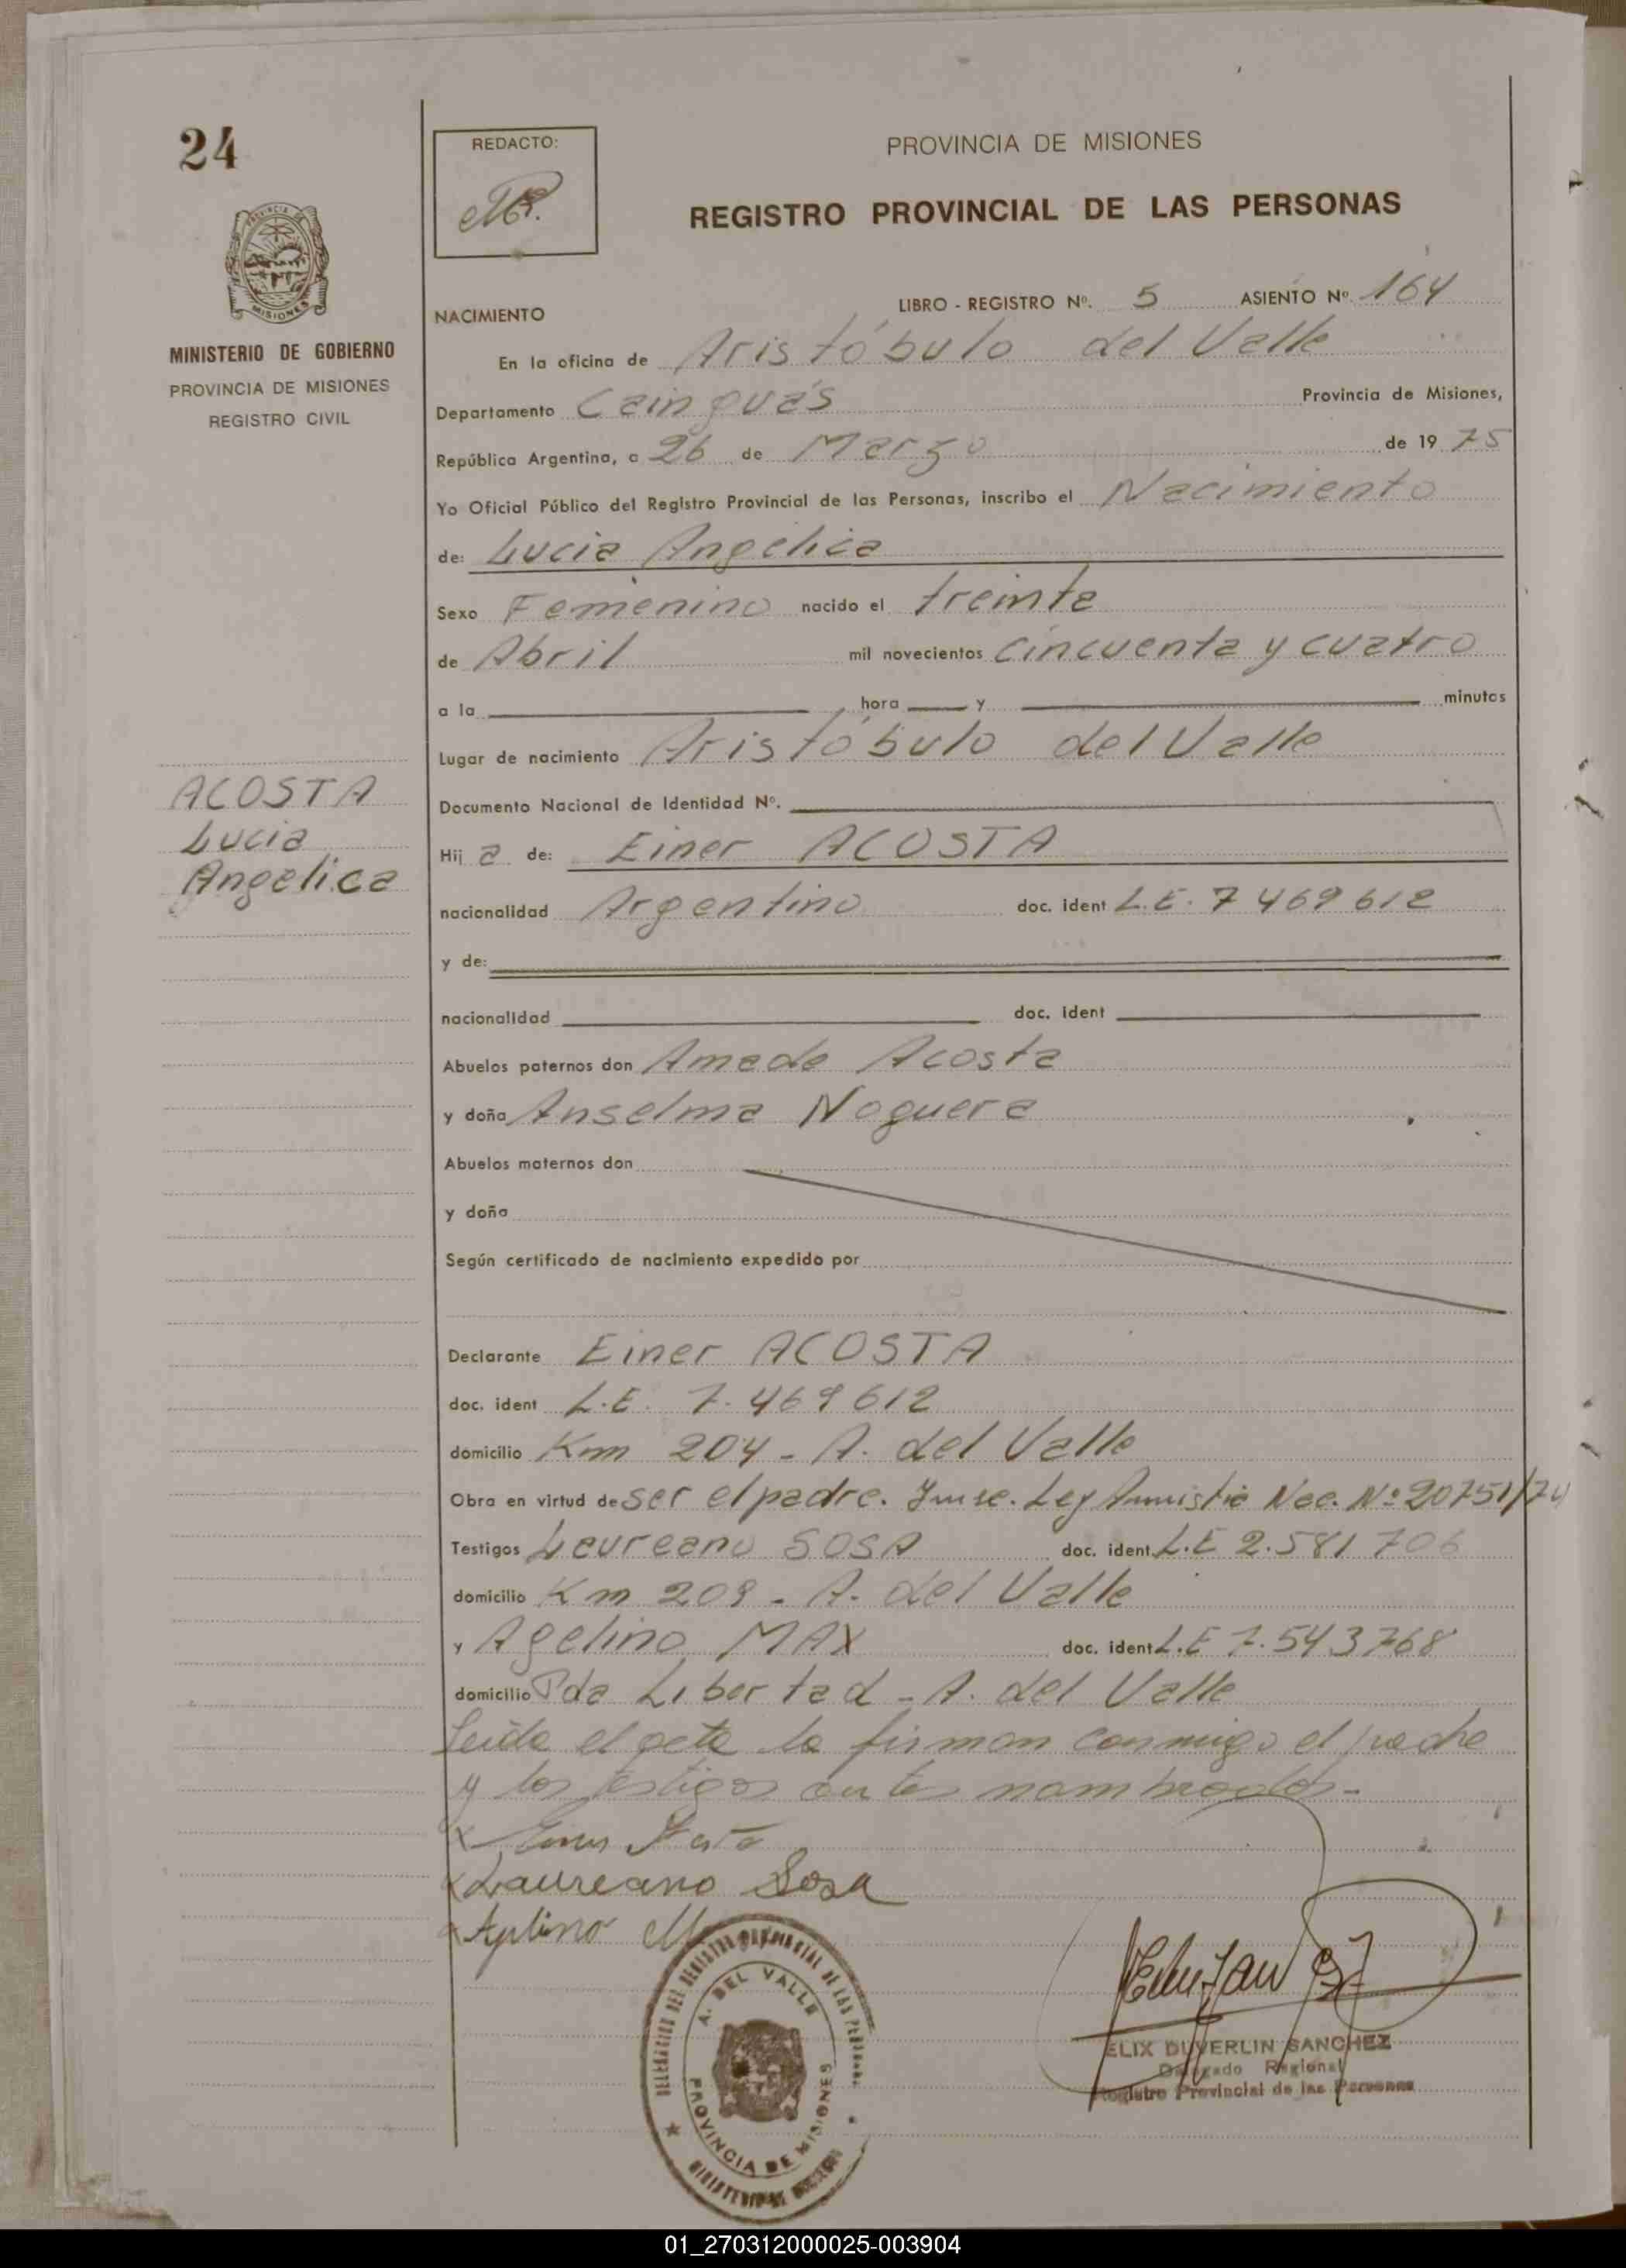 24
REDACTO:
PROVINCIA DE MISIONES
REGISTRO PROVINCIAL DE LAS PERSONAS
MISIONES
MINISTERIO DE GOBIERNO
PROVINCIA DE MISIONES
REGISTRO CIVIL
NACIMIENTO
LIBRO - REGISTRO Nº. 5 ASIENTO Nº. 164
En la oficina de Aristóbulo del Valle
Departamento Cainguás Provincia de Misiones,
República Argentina, a 26 de Marzo de 1975
Yo Oficial Público del Registro Provincial de las Personas, inscribo el Nacimiento
de: Lucia Angelica
Sexo Femenino nacido el treinta
de Abril mil novecientos cincuenta y cuatro
a la hora y minutos
Lugar de nacimiento Aristóbulo del Valle
ACOSTA
Lucia
Angelica
Documento Nacional de Identidad Nº.
Hija de: Einer ACOSTA
nacionalidad Argentino doc. ident L.E. 7469612
y de:
nacionalidad doc. ident
Abuelos paternos don Amado Acosta
y doña Anselma Noguera
Abuelos maternos don
y doña
Según certificado de nacimiento expedido por
Declarante Einer ACOSTA
doc. ident L.E. 7.469612
domicilio Km 204 - A. del Valle
Obra en virtud de ser el padre. Ley Amnistia Nac. Nº 20751/74
Testigos Laureano SOSA doc. ident. L.E 2.581706
domicilio Km 209 - A. del Valle
y Agelino MAX doc. ident L.E 7.543768
domicilio Pda Libertad - A. del Valle
Leida el acta la firman conmigo el padre
y los testigos antes nombrados -
x
x Laureano Sosa
x
DELEGACION DEL REGISTRO PROVINCIAL DE LAS PERSONAS
A. DEL VALLE
PROVINCIA DE MISIONES
MINISTERIO DE GOBIERNO
ELIX DUVERLIN SANCHEZ
Delegado Regional
Registro Provincial de las Personas
01_270312000025-003904